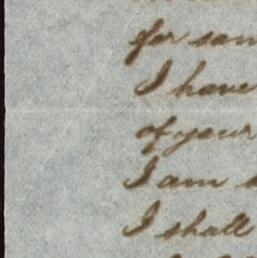 for som
I have
of your
I am
I shall